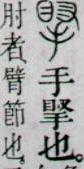 手掔也。
肘者臂節也。